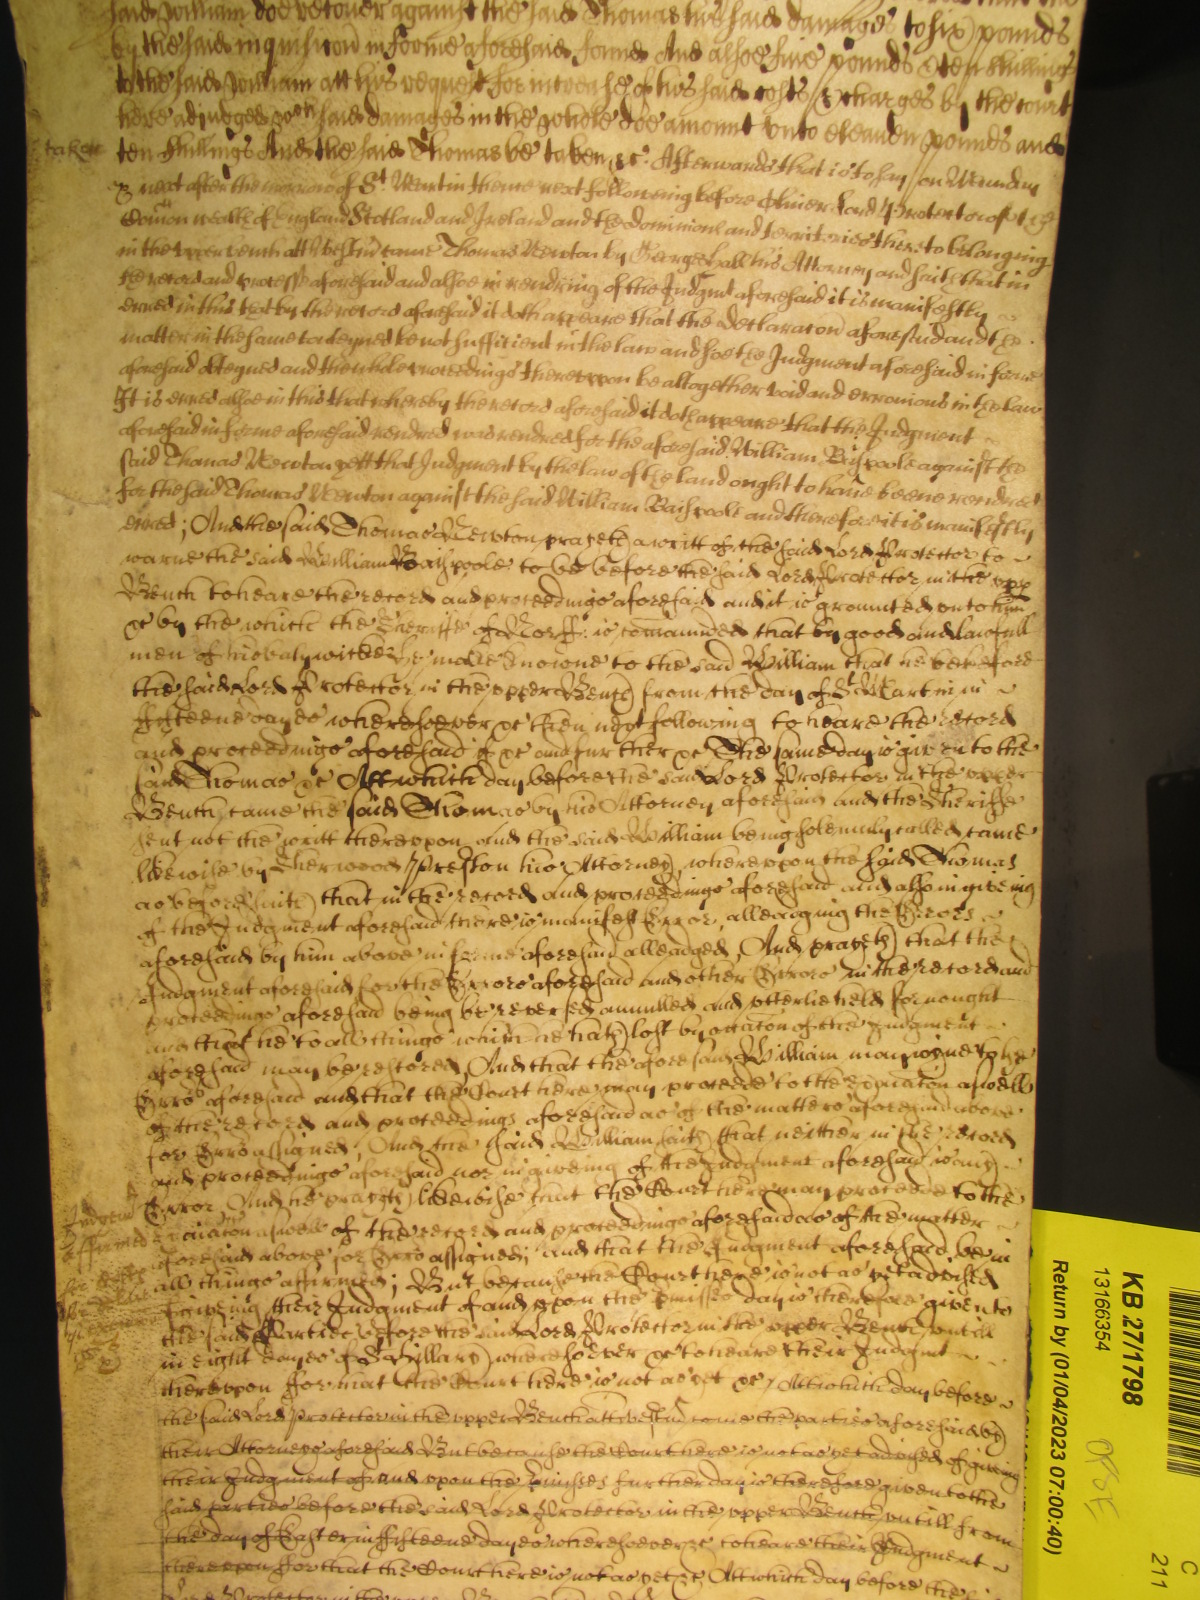 said William doe recover against the said Thomas his said damages to six pounds
by the said inquisicon in forme aforesaid found And alsoe five pounds & ten shillings
to the said William att his request for increase of his said costs & charges by the court
here adjudged wch said damages in the whole doe amount unto eleaven pounds and
taken
ten shillings And the said Thomas be taken &c. Afterwards that is to say on Munday
next after the morrow of St Martin thence next following before Oliver Lord Protector of the
Comon wealth of England Scotland and Ireland and the dominions and territories thereto belonging
in the upper bench att Westmr came Thomas Newton by George Hall his Attorney and saith that in
the record and processe aforesaid and alsoe in rendring of the Judgmt aforesaid it is manifestly
erred in this that by the record aforesaid it doth appeare that the declaracon aforesaid and the
matter in the same conteyned be not sufficient in the law and soe the Judgment aforesaid in forme
aforesaid and the whole proceedings thereupon be altogether void and erronious in the law
It is erred alsoe in this that whereby the record aforesaid it doth appeare that the Judgment
aforesaid in forme aforesaid rendred was rendred for the aforesaid William Baispoole against the
said Thomas Newton yett that Judgment by the law of the land ought to have beene rendred
for the said Thomas Newton against the said William Baispoole and therefore it is manifestly
erred; And the said Thomas Newton prayeth a writt of the said Lord Protector to
warne the said William Baispoole to be before the said Lord Protector in the upp
Bench to heare the record and proceedings aforesaid and it is graunted unto him
&c by the which the Sheriffe of Norff is comaunded that by good and lawfull
men of his baylywicke he make knowne to the said William that he be before
the said Lord Protector in the upper Bench from the day of St Martin in
fifteene dayes wheresoever &c then next following to heare the record
and proceedings aforesaid if &c and further &c The same day is given to the
said Thomas &c Att which day before the said Lord Protector in the upper
Bench came the said Thomas by his Attorney aforesaid and the Sheriffe
sent not the writt thereupon and the said William being solemnly called came
likewise by Sherwood Preston his Attorney, whereupon the said Thomas
as before saith that in the record and proceedings aforesaid and also in giveing
of the Judgment aforesaid there is manifest Error, alleadging the Errors
aforesaid by him above in forme aforesaid alleadged, And prayeth that the
Judgment aforesaid for the Errors aforesaid and other Errors in the record and
proceedings aforesaid being be reversed annulled and utterlie held for nought
and that he to all things which he hath lost by occacon of the Judgment
aforesaid may be restored, And that the aforesaid William may rejoyne to the
Errors aforesaid and that the Court here may proceede to the exaiacon aswell
of the record and proceedings aforesaid as of the matters aforesaid above
for Error assigned, And the said William saith that neither in the record
and proceedings aforesaid nor in giveing of the Judgment aforesaid is any
Error And he prayeth likewise that the Court here may proceede to the
Judgmt
affirmed
exaiacon aswell of the record and proceedings aforesaid as of the matter
aforesaid above for Error assigned; and that the Judgment aforesaid be in
all things affirmed; But because the Court here is not as yet advised
of giveing their Judgment of and upon the premisses day is therefore given to
the said Parties before the said Lord Protector in the upper Bench untill
in eight dayes of St Hillary wheresoever &c to heare their Judgmt
thereupon for that the Court here is not as yet &c, Att which day before
the said Lord Protector in the upper Bench att Westmr come the parties aforesaid by
their Attorneys aforesaid But because the Court here is not as yet advised of giveing
their Judgment of and upon the Premisses further day is therefore given to the
said parties before the said Lord Protector in the upper Bench untill from
the day of Easter in fifteene dayes wheresoever &c to heare their Judgment
thereupon for that the Court here is not as yet &c, Att which day before the
Lord Protector in the
KB 27/1798
13166354
Return by (01/04/2023 07:00:40)
C
211